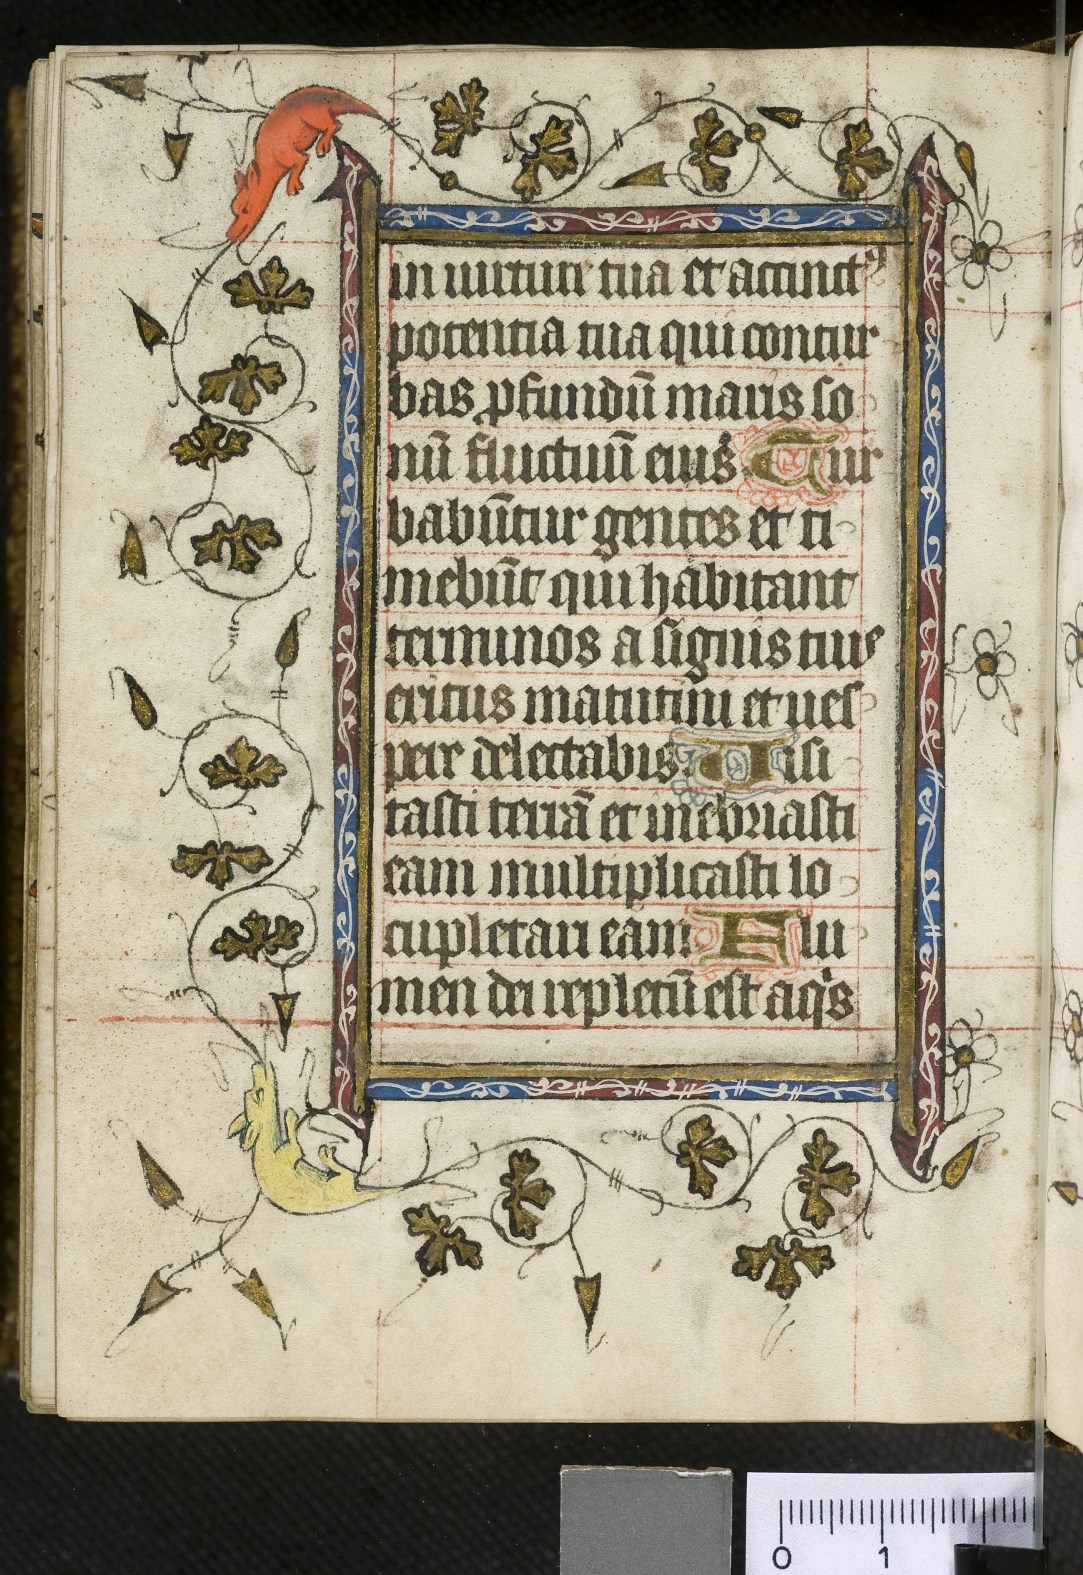 in uirtute tua et accinctꝰ
potentia tua qui contur
bas ꝓfundū maris so
nū fluctuū eius Tur
babūtur gentes et ti
mebūt qui habitant
terminos a signis tuis
exitus matutini et ues
pere delectabis Uisi
tasti terrā et inebriasti
eam multiplicasti lo
cupletare eam Flu
men dei repletū est aqͥs
0 1